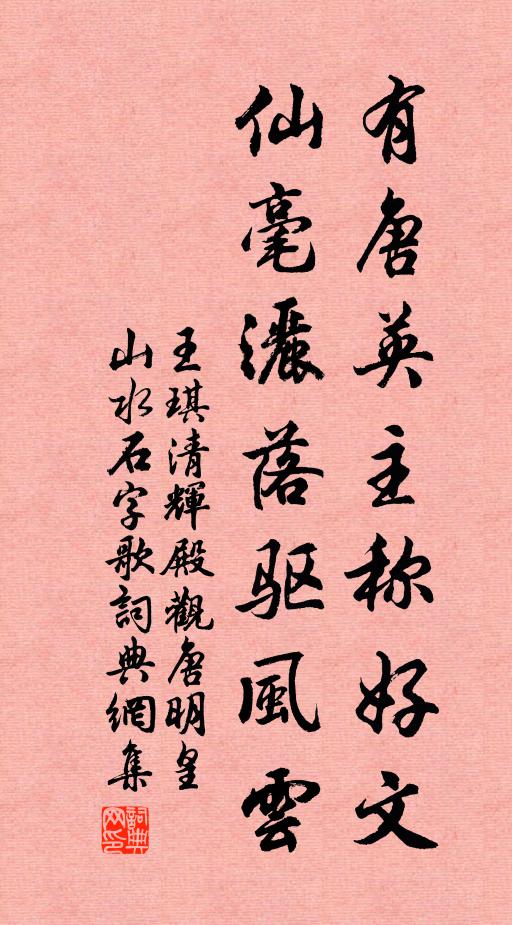 有唐英主称好文
仙毫灑落驱風雲
王琪清輝殿觀唐明皇
山水石字歌詞典網集
詞典网印